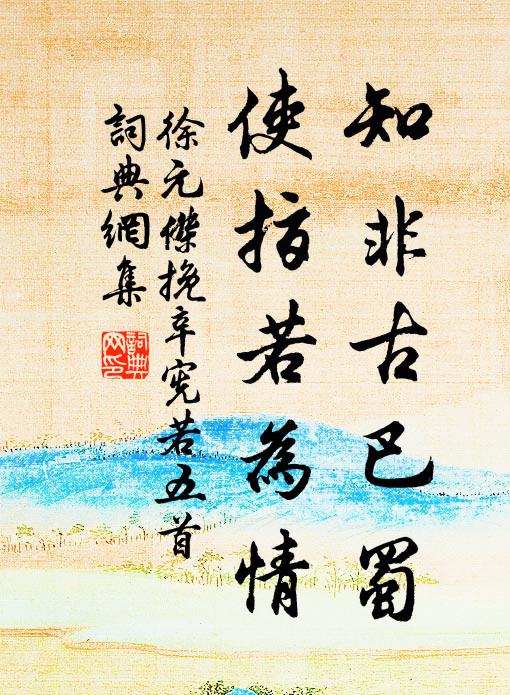 知非古巴蜀
使指若為情
徐元傑挽辛宪若五首
詞典網集
詞典網印